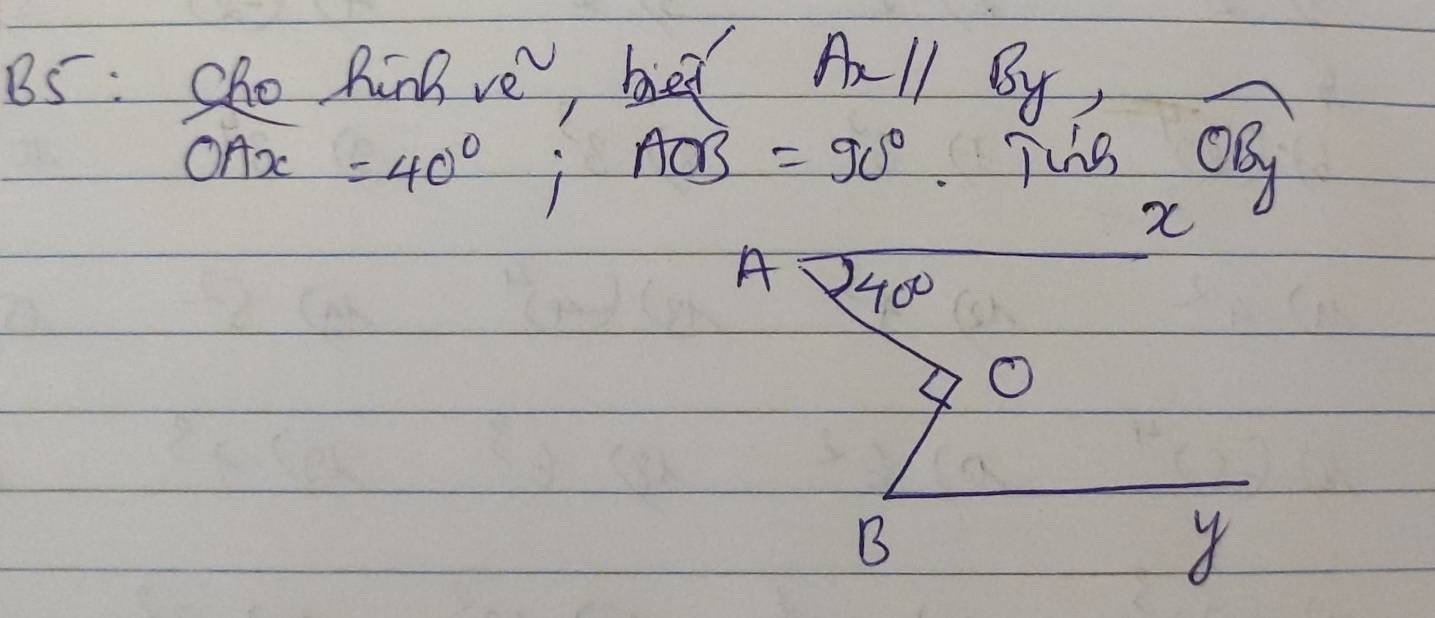 B5: Cho hình vẽ, biết Ax // By,
OAx = 40°; AOB = 90°. Tính OBy
x
A
40°
O
B
y